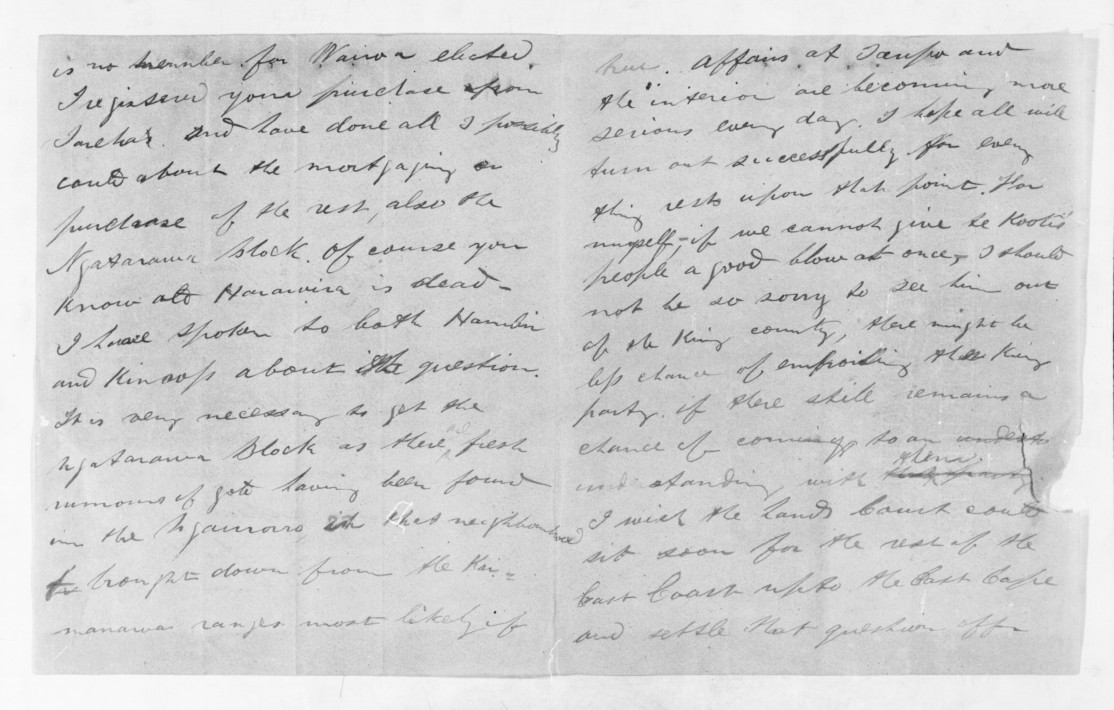 is no member for Wairoa elected.
I registered your purchase from
Tareha's and have done all I possibly
could about the mortgaging or
purchase of the rest, also the
Ngatarawa Block. Of course you
know all Harawira is dead -
I have spoken to both Hamlin
and Kinross about the question.
It is very necessary to get the
Ngatarawa Block as there are fresh
rumours of gold having been found
in the Ngaruroro, in that neighbourhood
brought down from the Kai-
manawa ranges most likely if
true. Affairs at Taupo and
the interior are becoming more
serious every day. I hope all will
turn out successfully for every
thing rests upon that point. For
myself, if we cannot give te Kooti's
people a good blow at once, I should
not be so sorry to see him out
of the King county, there might be
less chance of embroiling the King
party. if there still remains a
chance of coming to an underst
understanding with them
I wish the Lands Court could
sit soon for the rest of the
East Coast up to the East Cape
and settle that question off